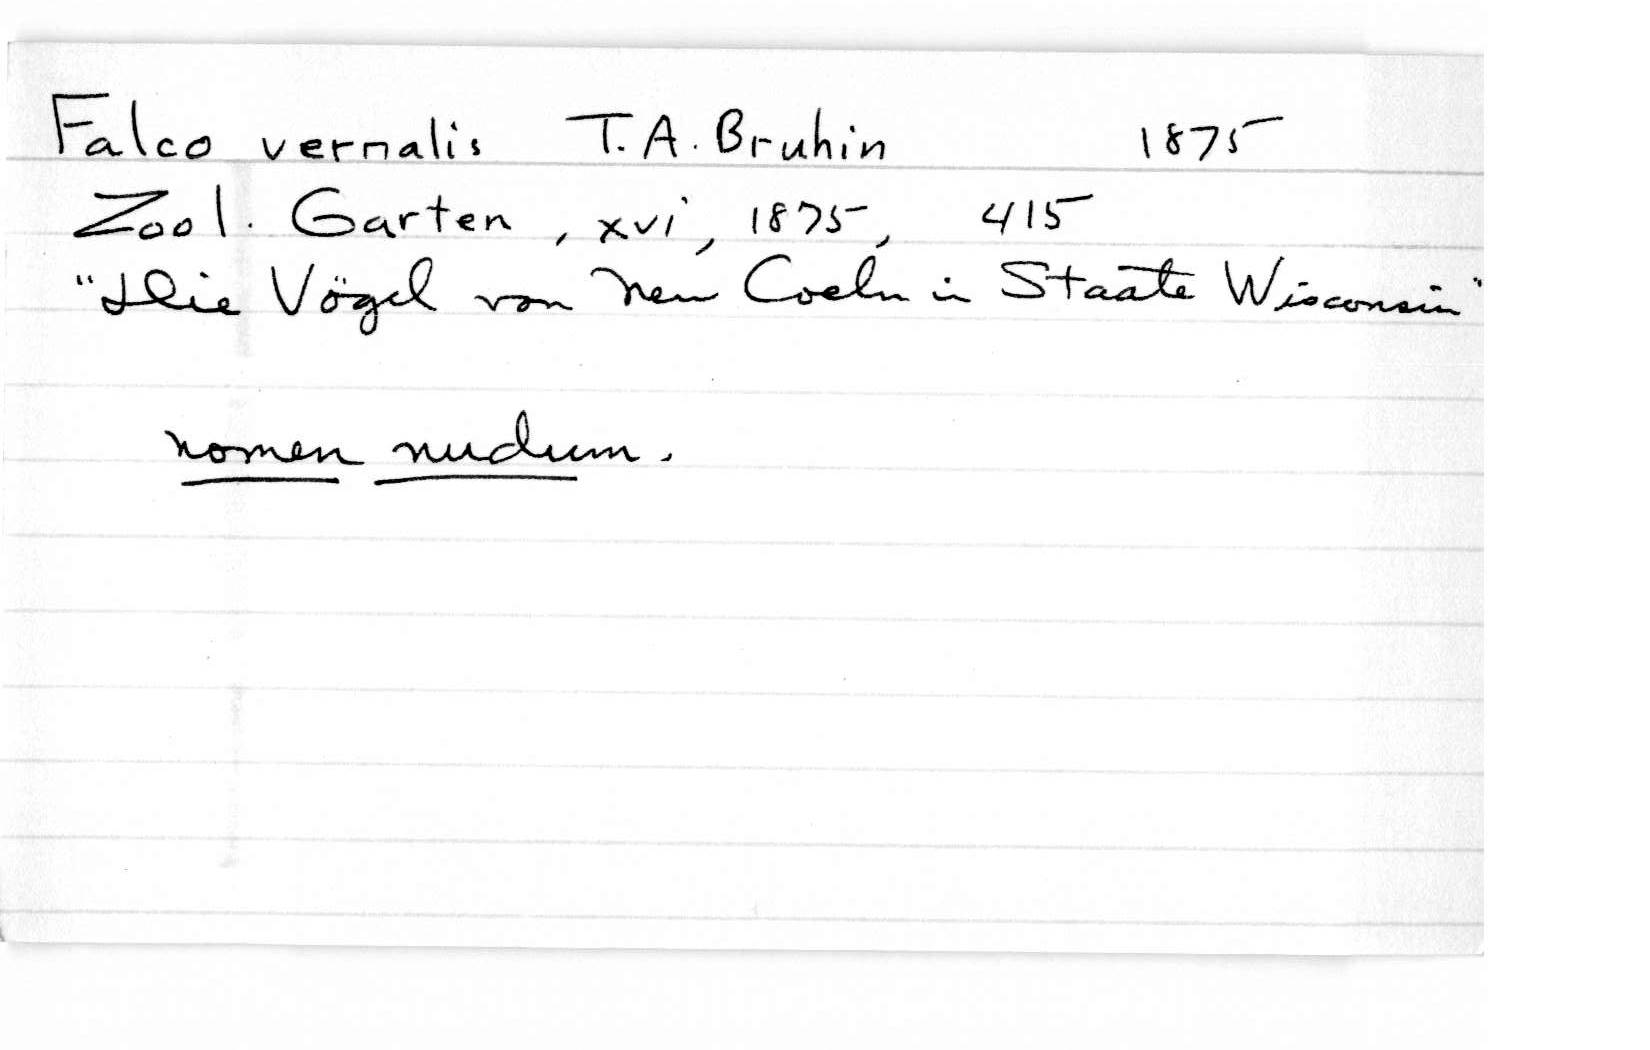 Falco vernalis T. A. Bruhin 1875
Zool. Garten, xvi, 1875, 415
"Die Vögel von New Coeln in Staate Wisconsin"
nomen nudum.